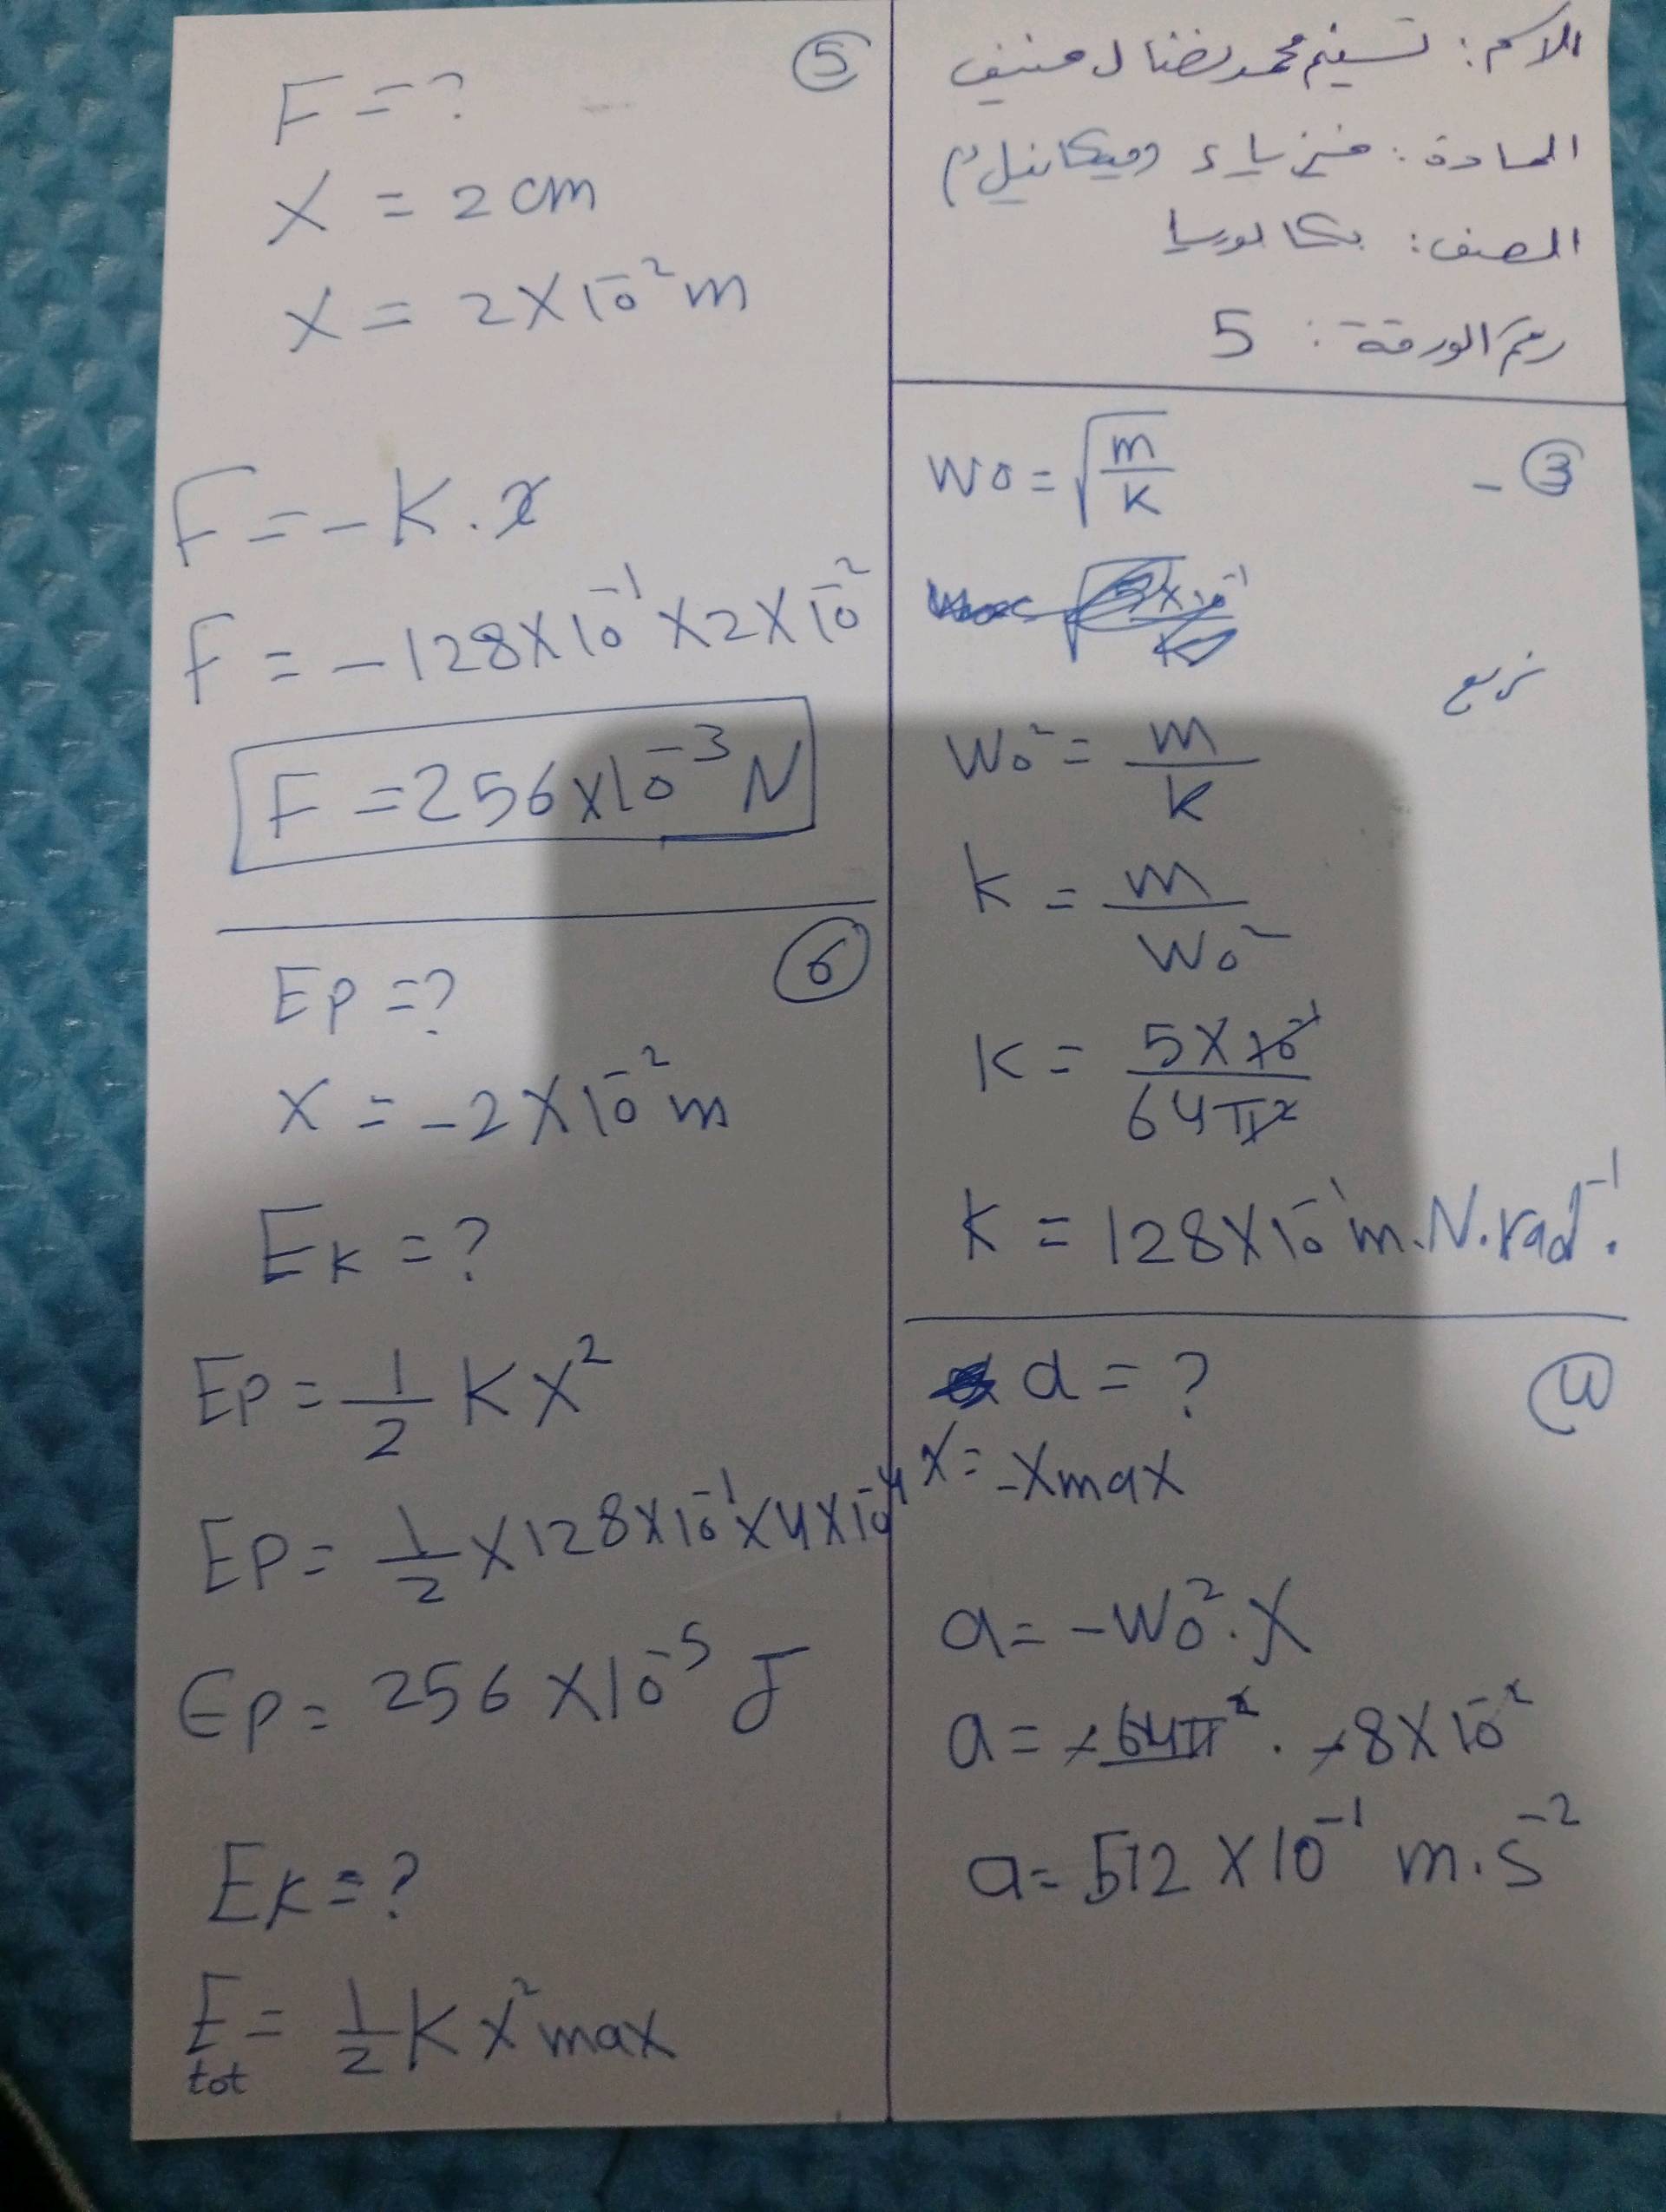 الاسم: تسنيم محمد نضال منيف
المادة: فيزياء (ميكانيك)
الصف: بكالوريا
رقم الورقة: 5
③ -
W0 = √(m/k)
نربع
W0² = m/k
k = m/W0²
K = 5 × 10⁻¹ / 64π²
K = 128 × 10⁻¹ m.N.rad⁻¹.
④
a = ?
x = -Xmax
a = -W0². X
a = -64π² . -8 × 10⁻²
a = 512 × 10⁻¹ m.s⁻²
⑤
F = ?
X = 2 cm
X = 2 × 10⁻² m
F = - K . x
F = - 128 × 10⁻¹ × 2 × 10⁻²
F = 256 × 10⁻³ N
⑥
Ep = ?
X = - 2 × 10⁻² m
Ek = ?
Ep = 1/2 K X²
Ep = 1/2 × 128 × 10⁻¹ × 4 × 10⁻⁴
Ep = 256 × 10⁻⁵ J
Ek = ?
Etot = 1/2 K X²max